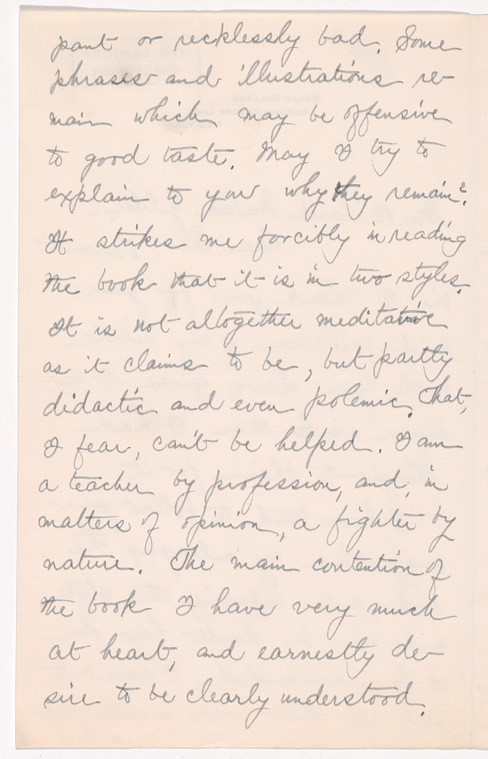 pant or recklessly bad. Some
phrases and illustrations re-
main which may be offensive
to good taste. May I try to
explain to you why they remain?
It strikes me forcibly in reading
the book that it is in two styles.
It is not altogether meditative
as it claims to be, but partly
didactic and even polemic. That,
I fear, can't be helped. I am
a teacher by profession, and, in
matters of opinion, a fighter by
nature. The main contention of
the book I have very much
at heart, and earnestly de-
sire to be clearly understood.